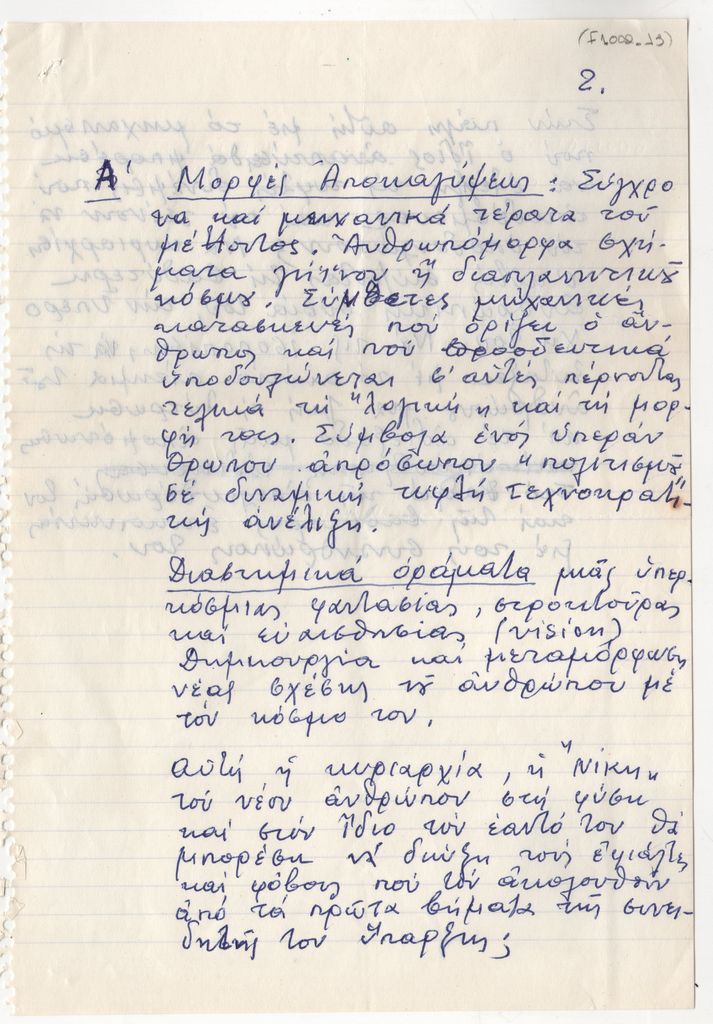 (F1.002_13)
2.
Α' Μορφές Ἀποκαλύψεως : Σύγχρο
να καί μηχανικά τέρατα τοῦ
μέλλοντος. Ἀνθρωπόμορφα σχή-
ματα γήϊνου ἤ διαπλανητικοῦ
κόσμου. Σύνθετες μηχανικές
κατασκευές πού ὁρίζει ὁ ἄν-
θρωπος καί πού προοδευτικά
ὑποδουλώνεται σ' αὐτές πέρνοντας
τελικά τή "λογική" καί τή μορ-
φή τους. Σύμβολα ἑνός ὑπεράν
θρωπου ἀπρόσωπου "πολιτισμοῦ"
σέ δυναμική τυφλή τεχνοκρατι-
κή ἀνέλιξη.
Διαστημικά ὁράματα μιᾶς ὑπερ-
κόσμιας φαντασίας, στρουκτούρας
καί εὐαισθησίας (vision)
Δημιουργία καί μεταμόρφωση
νέας σχέσης τοῦ ἀνθρώπου μέ
τόν κόσμο του.
Αὐτή ἡ κυριαρχία, ἡ "Νίκη"
τοῦ νέου ἀνθρώπου στή φύση
καί στόν ἴδιο τόν ἑαυτό του θά
μπορέση νά διώξη τούς ἐφιάλτες
καί φόβους πού τόν ἀκολουθοῦν
ἀπό τά πρῶτα βήματα τῆς συνει-
δητῆς του ὕπαρξης;